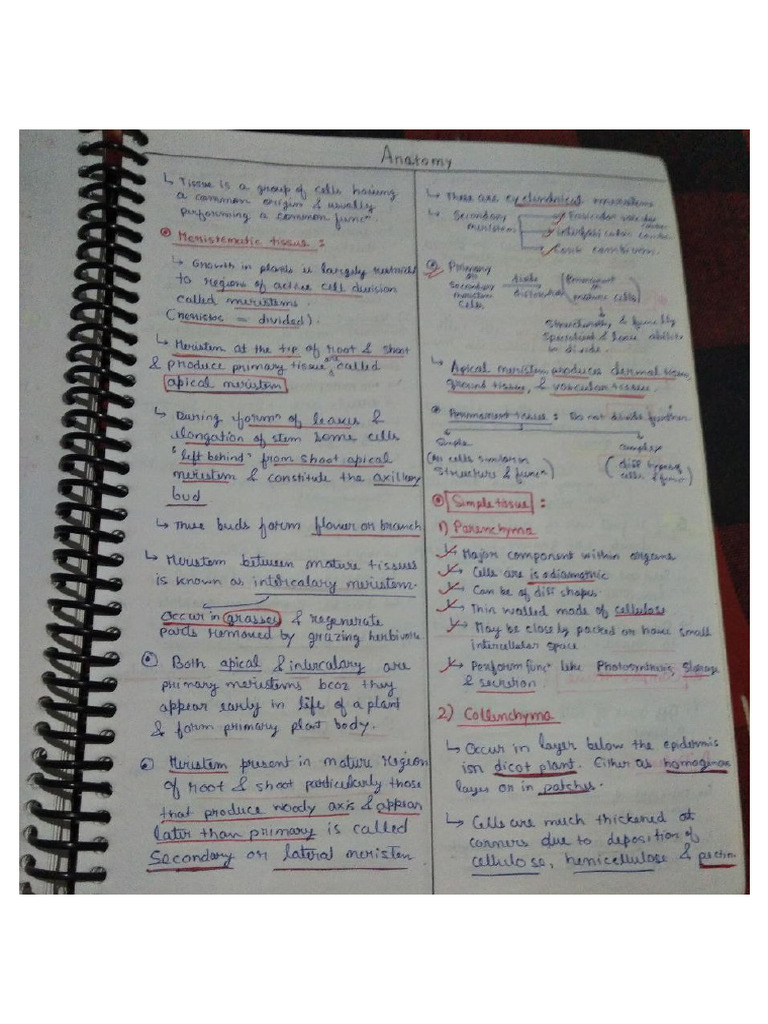 Anatomy
↳ Tissue is a group of cells having
a common origin & usually
performing a common funcⁿ.
Meristematic tissue :
↳ Growth in plants is largely restricted
to regions of active cell division
called meristems.
(meristos = divided).
↳ Meristem at the tip of root & shoot
& produce primary tissue are called
apical meristem
↳ During formⁿ of leaves &
elongation of stem some cells
"left behind" from shoot apical
meristem & constitute the axillary
bud
↳ These buds form flower or branch
↳ Meristem between mature tissues
is known as intercalary meristem.
Occur in grasses & regenerate
parts removed by grazing herbivore
Both apical & intercalary are
primary meristems bcoz they
appear early in life of a plant
& form primary plant body.
Meristem present in mature region
of root & shoot particularly those
that produce woody axis & appear
later than primary is called
Secondary or lateral meristem.
↳ These are cylindrical meristems
↳ Secondary
meristem
Fascicular vascular
cambium
interfascicular
Cork cambium.
Primary
or
Secondary
meristem
cells
divide
(Permanent
or
mature cells)
Structurally & funcⁿlly
specialised & lose ability
to divide.
↳ Apical meristem produces dermal tissue,
ground tissue, & vascular tissue.
Permanent tissue : Do not divide further
Simple
(All cells similar in
structure & funcⁿ)
complex
(diff types of
cells & funcⁿ)
Simple tissue :
1) Parenchyma
Major component within organs
Cells are isodiametric
Can be of diff shapes
Thin walled made of cellulose
May be closely packed or have small
intercellular space
Perform funcⁿ like Photosynthesis, Storage
& secretion.
2) Collenchyma
↳ Occur in layer below the epidermis
in dicot plant. Either as homogenous
layer or in patches.
↳ Cells are much thickened at
corners due to deposition of
cellulose, hemicellulose & pectin